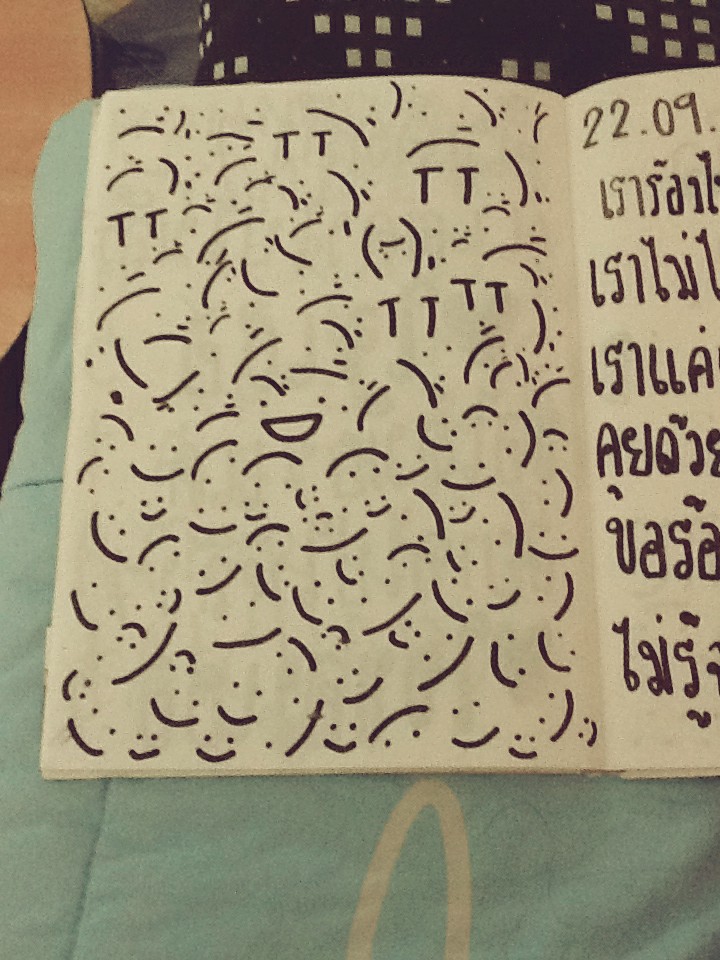 T T
T T
T T
T T
T T
22.09.
เราร้องไ
เราไม่ไ
เราแค่
คุยด้วย
ขอร้อ
ไม่รู้